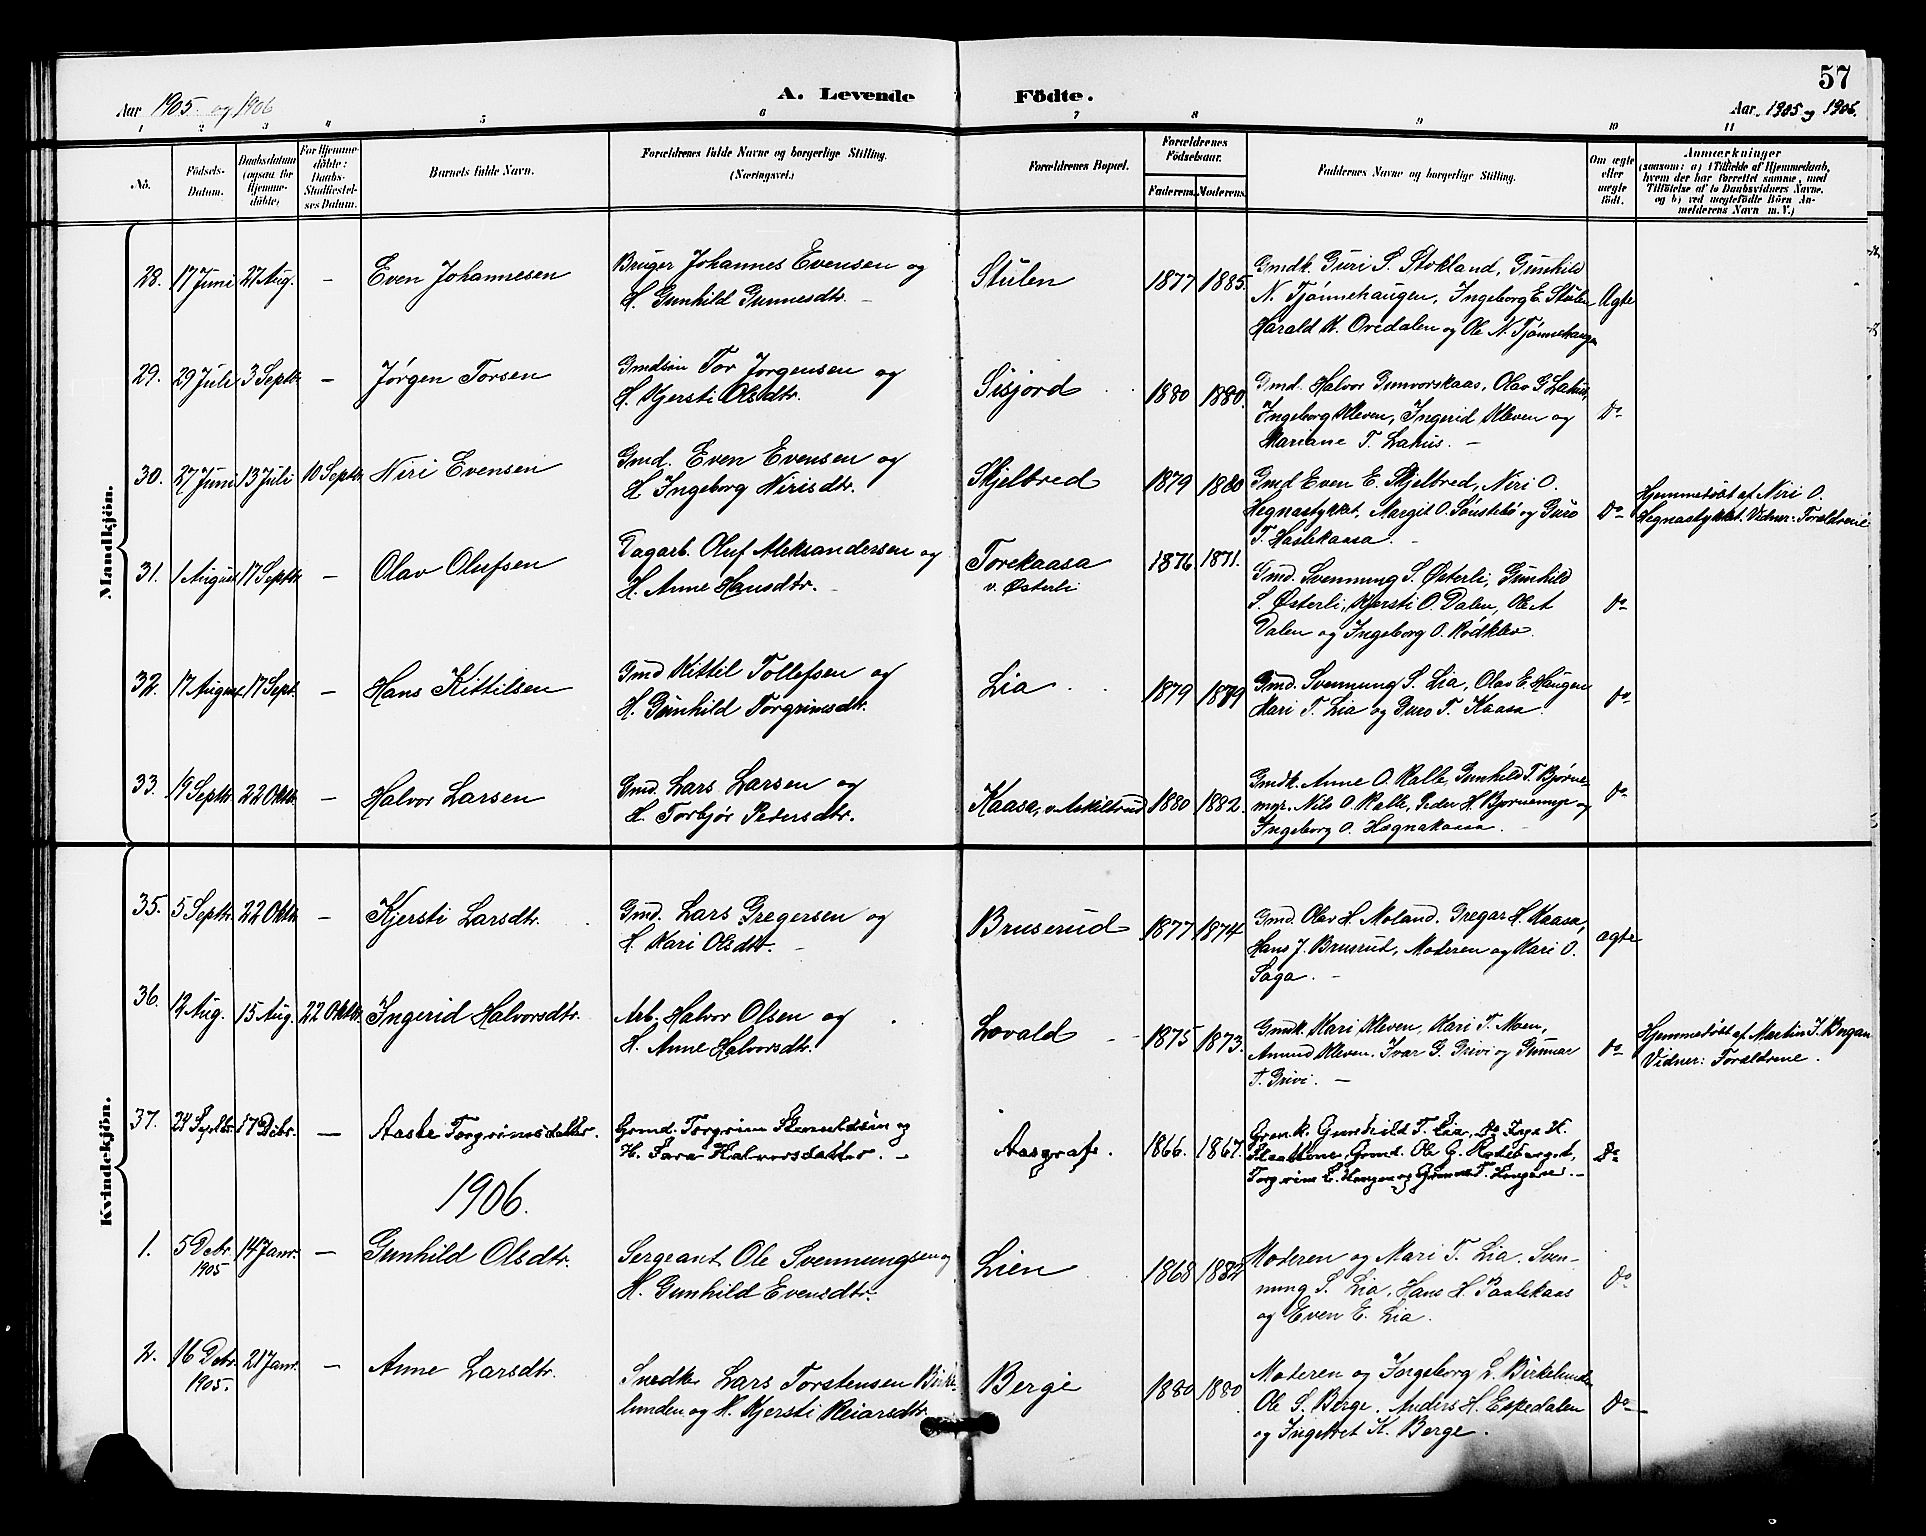 57
Aar 1905 og 1906
A. Levende Födte.
Aar 1905 og 1906.
1 2 3 4 5 6 7 8 9 10 11
No.
Födsels-
Datum.
Daabsdatum
(ogsaa for
Hjemme-
döbte)
For Hjemme-
döbte:
Daabs-
Stadfæstel-
ses Datum.
Barnets fulde Navn.
Forældrenes fulde Navne og borgerlige Stilling.
(Næringsvei.)
Forældrenes Bopæl.
Forældrenes
Födselsaar.
Faderens. Moderens.
Faddernes Navne og borgerlige Stilling.
Om ægte
eller
uægte
födt.
Anmærkninger
(saasom: a) i Tilfælde af Hjemmedaab,
hvem der har forrettet samme, med
Tilföielse af to Daabsvidners Navne.
og b) ved uægtefödte Börn An-
melderens Navn m. V.)
Mandkjön.
28. 17 Juni 27 Aug. - Even Johannesen
Bruger Johannes Evensen og
H. Gunhild Gunnesdtr. -
Stulen 1877 1885.
Gmdk. Guri S. Stokland, Gunhild
N. Tjønnehaugen, Ingeborg E. Stulen
Harald K. Ovedalen og Ole N. Tjønnehaugen
Ægte
29. 29 Juli 3 Septbr. - Jørgen Torsen
Gmdsøn Tor Jørgensen og
H. Kjersti Olsdtr.
Sisjord 1880 1880.
Gmd. Halvor Gunvorskaas, Olav G. Lahus,
Ingeborg Kleven, Ingerid Kleven og
Mariane T. Lahus. -
Do
30. 27 Juni 13 Juli 10 Septbr. Niri Evensen
Gmd. Even Evensen og
H. Ingeborg Nirisdtr.
Skjelbred 1879 1880
Gmd Even E. Skjelbred, Niri O.
Hegnastykket, Margit O. Sønstebø og Guro
T. Haslekaasa. -
Do
Hjemmedøbt af Niri O.
Hegnastykket. Vidner: Forældrene
31. 1 August 17 Septbr. - Olav Olufsen
Dagarb. Oluf Aleksandersen og
H. Anne Hansdtr.
Torekaasa
v. Østerli
1876 1871.
Gmd. Svennung S. Østerli, Gunhild
S. Østerli, Kjersti O. Dalen, Ole A
Dalen og Ingeborg O. Rødklev.
Do
32. 17 August 17 Sept. - Hans Kittilsen
Gmd Kittil Tollefsen og
H. Gunhild Torgrimsdtr.
Lia 1879 1879
Gmd. Svennung S. Lia, Olav E. Haugen
Mari T. Lia og Guro T. Kaasa.
Do
33. 19 Septbr. 22 Oktbr. - Halvor Larsen
Gmd. Lars Larsen og
H. Torbjør Pedersdtr.
Kaasa, v. Askilsrud 1880 1882.
Gmdk. Anne O. Kalle, Gunhild T. Bjørne-
myr. Nils O. Kalle, Peder H. Bjørnemyr og
Ingeborg O. Hægnakaasa. -
Do
Kvindekjön.
35. 5 Septbr. 22 Oktbr. - Kjersti Larsdtr.
Gmd. Lars Gregersen og
H. Kari Olsdtr. -
Bruserud 1877 1874
Gmd. Olav H. Moland. Gregar H. Kaasa,
Hans J. Brusrud, Moderen og Kari O.
Saga. -
ægte
36. 12 Aug. 15 Aug. 22 Oktbr. Ingerid Halvorsdtr.
Arb. Halvor Olsen og
H. Anne Halvorsdtr.
Lovald 1875 1873.
Gmdk. Kari Kleven, Kari T. Moen,
Amund Kleven. Ivar G. Grivi og Gunnar
T. Grivi. -
Do
Hjemmedøbt af Martin J. Bergan
Vidner: Forældrene.
37. 24 Septbr. 17 Dcbr. - Aaste Torgrimsdatter.
Grmd. Torgrim Stenuldsøn og
H. Sara Halvorsdatter. -
Aasgrav. 1866. 1867.
Grmk. Gunhild T. Lia, Do Inga H.
Grmd. Ole G.
Torgrim L. Haugen og
Do
1906.
1. 5 Dcbr. 1905 14 Janr. - Gunhild Olsdtr.
Sergeant Ole Svennungsen og
H. Gunhild Evensdtr.
Lien 1868 1884
Moderen og Mari T. Lia. Sven-
nung S. Lia, Hans H. Paalekaas
og Even E. Lia.
Do
2. 16 Dcbr. 1905. 21 Janr. - Anne Larsdtr.
Snedker Lars Torstensen Birke-
lunden og H. Kjersti Reiarsdtr.
Berge 1880 1880
Moderen og Ingeborg L. Birkelunden
Ole S. Berge. Anders H. Espedalen
og Ingebret K. Berge.
Do